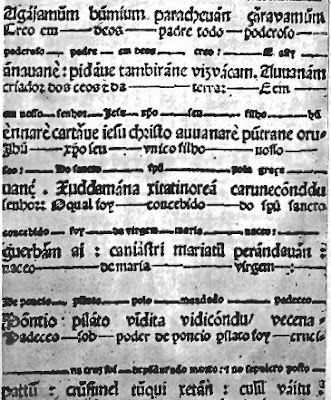 Agajamum bumium paracheuan garavamum
Creo em deos padre todo poderoso
poderoso padre em deos creo: E assy
ānauanē: pidaue tambirane vizvacam. Auuanām
criador dos ceos & da terra: E em
em nosso senhor Jesu xpo seu filho hū
ēnnarē cartaue iesu christo auuanarē putrane oru
Jhū xpo seu vnico filho nosso
seo: Do sancto spū pola graça
uanē. Xuddamāna xitatinoreā carunecōnddu
senhor: O qual foy concebido do spū sancto
concebido foy da virgem maria naceo:
gherbam ai: caniāstri mariatil perāndauān:
naceo de maria virgem:
De poncio pilato polo mandado padeceo
Pōntio: pilato vidita vidicōndu vecena
Padeceo sob poder de poncio pilato foy cruci
na cruz foi morto: & no sepulcro posto
pattū: crusinel tūqui xetān: culil vaitu